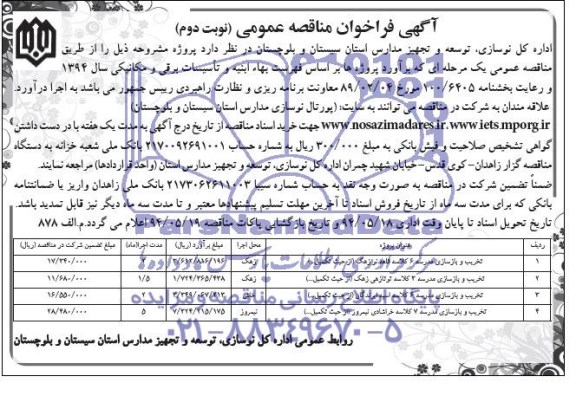 آگهی فراخوان مناقصه عمومی (نوبت دوم)
اداره کل نوسازی، توسعه و تجهیز مدارس استان سیستان و بلوچستان در نظر دارد پروژه مشروحه ذیل را از طریق
مناقصه عمومی یک مرحله ای که برآورد پروژه ها بر اساس فهرست بهاء ابنیه و تأسیسات برقی و مکانیکی سال ۱۳۹۴
و رعایت بخشنامه ۱۰۰/۶۴۰۵ مورخ ۸۹/۰۲/۰۴ معاونت برنامه ریزی و نظارت راهبردی رییس جمهور می باشد به اجرا درآورد.
علاقه مندان به شرکت در مناقصه می توانند به سایت: (پورتال نوسازی مدارس استان سیستان و بلوچستان)
www.nosazimadares.ir، www.iets.mporg.ir جهت خرید اسناد مناقصه از تاریخ درج آگهی به مدت یک هفته با در دست داشتن
گواهی تشخیص صلاحیت و فیش بانکی به مبلغ ۳۰۰/۰۰۰ ریال به شماره حساب ۲۱۷۰۰۹۲۶۹۱۰۰۱ بانک ملی شعبه خزانه به دستگاه
مناقصه گزار زاهدان-کوی قدس-خیابان شهید چمران اداره کل نوسازی، توسعه و تجهیز مدارس استان (واحد قراردادها) مراجعه نمایند.
ضمناً تضمین شرکت در مناقصه به صورت وجه نقد به حساب شماره سیبا ۲۱۷۳۰۶۲۶۱۱۰۰۳ بانک ملی زاهدان واریز یا ضمانتنامه
بانکی که برای مدت سه ماه از تاریخ فروش اسناد تا آخرین مهلت تسلیم پیشنهادها معتبر و تا مدت سه ماه دیگر نیز قابل تمدید باشد.
تاریخ تحویل اسناد تا پایان وقت اداری ۹۴/۰۵/۱۸ و تاریخ بازگشایی پاکات مناقصه ۹۴/۰۵/۱۹ اعلام می گردد.م.الف ۸۷۸
ردیف عنوان پروژه محل اجرا مبلغ برآورد (ریال) مدت اجرا(ماه) مبلغ تضمین شرکت در مناقصه (ریال)
۱ تخریب و بازسازی مدرسه ۶ کلاسه (از حیث تکمیل...) زهک ۱۷/۲۴۰/۰۰۰
۲ تخریب و بازسازی مدرسه ۲ کلاسه نوتازهی زهک (از حیث تکمیل...) زهک ۱/۵ ۱۱/۶۸۰/۰۰۰
۳ تخریب و بازسازی مدرسه کلاسه (از حیث تکمیل...) ۱۶/۵۵۰/۰۰۰
۴ تخریب و بازسازی مدرسه ۷ کلاسه خراشادی نیمروز (از حیث تکمیل...) نیمروز ۷/۲۲۴/۴۱۵/۱۷۵ ۵ ۲۸/۴۸۰/۰۰۰
پایگاه اطلاع رسانی مناقصه مزایده
۰۲۱-۸۸۳۴۹۶۷۰-۵
روابط عمومی اداره کل نوسازی، توسعه و تجهیز مدارس استان سیستان و بلوچستان